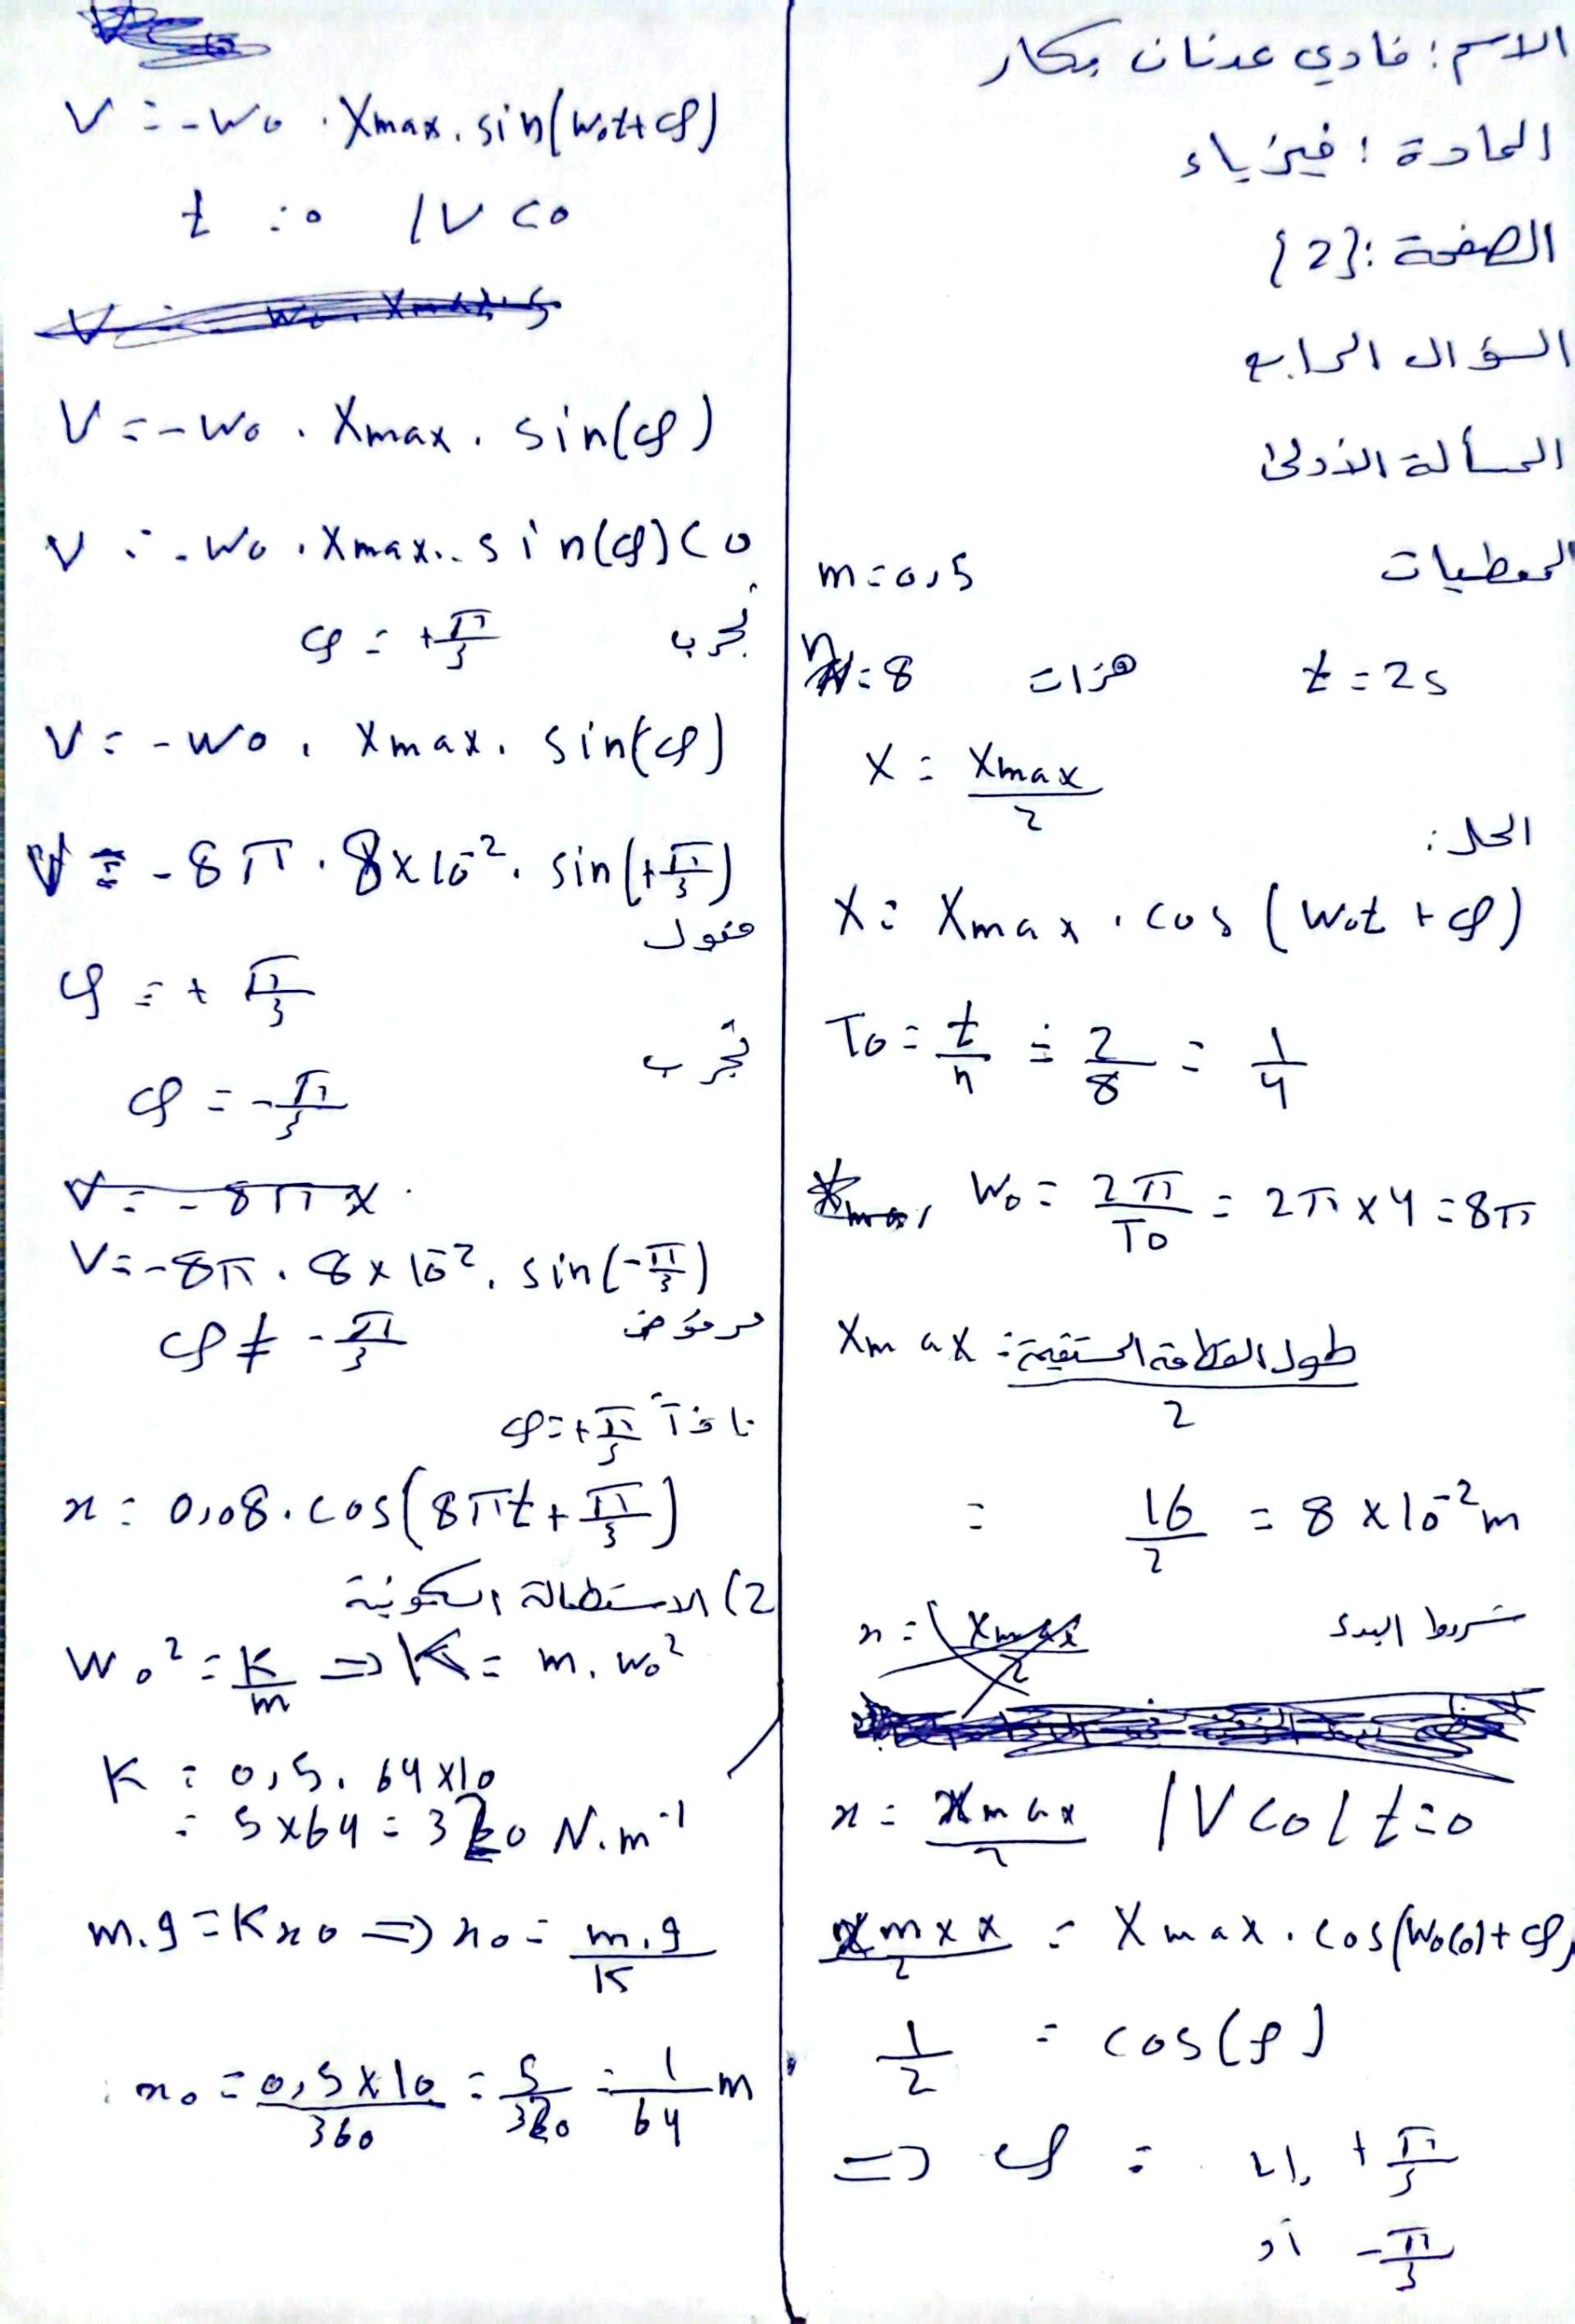 الاسم : فادي عدنان بكار
المادة : فيزياء
الصفحة : {2}
السؤال الرابع
المسألة الأولى
المعطيات m = 0,5
t = 2s هزات n = 8
X = Xmax / 2
الحل :
X = Xmax . cos (W₀t + φ)
T₀ = t/n = 2/8 = 1/4
W₀ = 2π/T₀ = 2π × 4 = 8π
Xmax = طول القطعة المستقيمة / 2
= 16/2 = 8 × 10⁻² m
شروط البدء
x = Xmax/2 / V < 0 / t = 0
Xmax/2 = Xmax . cos(W₀(0) + φ)
1/2 = cos(φ)
=> φ = إما + π/3
أو - π/3
V = -W₀ . Xmax . sin(W₀t + φ)
t = 0 / V < 0
V = -W₀ . Xmax . sin(φ)
V = -W₀ . Xmax . sin(φ) < 0
نجرب φ = +π/3
V = -W₀ . Xmax . sin(φ)
V = -8π . 8×10⁻² . sin(+π/3)
مقبول
φ = + π/3
نجرب
φ = -π/3
V = -8π . 8×10⁻² . sin(-π/3)
مرفوض φ ≠ -π/3
φ = +π/3
x = 0,08 . cos(8πt + π/3)
2) الاستطالة السكونية
W₀² = K/m => K = m . W₀²
K = 0,5 . 64×10
= 5×64 = 320 N.m⁻¹
m.g = Kx₀ => x₀ = m.g/K
x₀ = 0,5×10/360 = 5/320 = 1/64 m